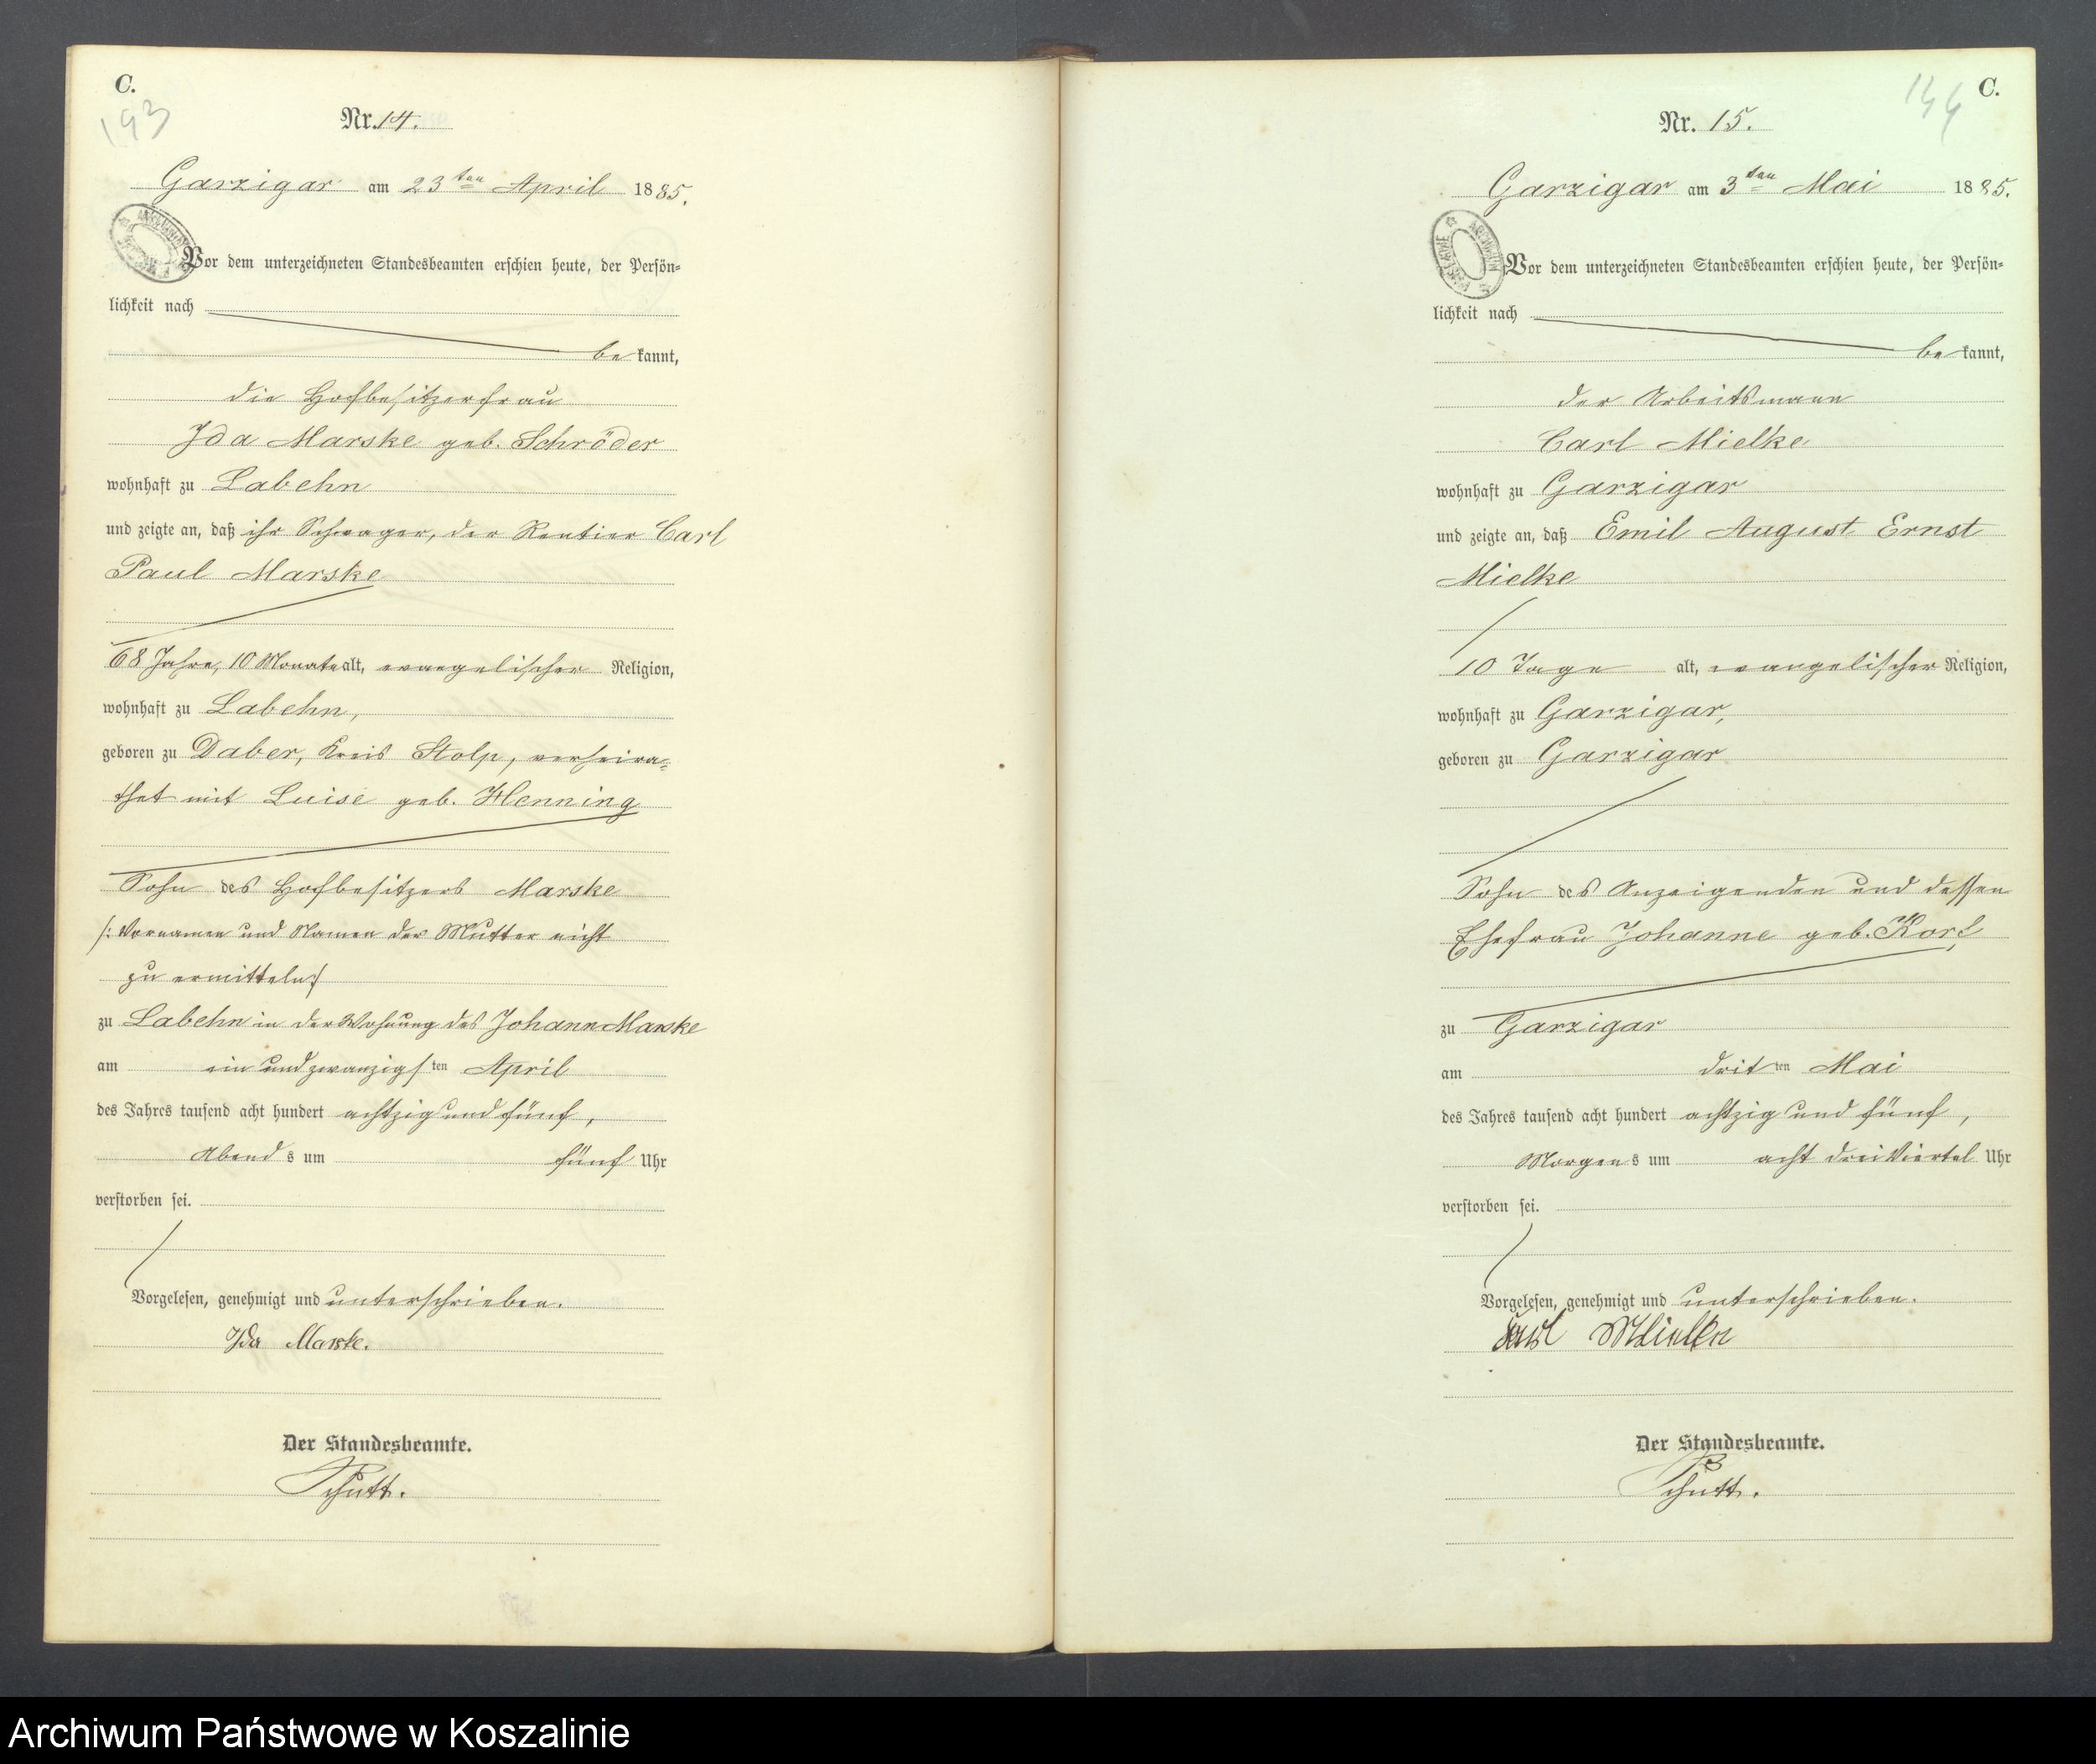 C.
193
Nr. 14.
Garzigar am 23ten April 1885.
Vor dem unterzeichneten Standesbeamten erschien heute, der Persön=
lichkeit nach
bekannt,
die Hofbesitzerfrau
Ida Marske geb. Schröder
wohnhaft zu Labehn
und zeigte an, daß ihr Schwager, der Rentier Carl
Paul Marske
68 Jahre, 10 Monate alt, evangelischer Religion,
wohnhaft zu Labehn,
geboren zu Daber, Kreis Stolp, verheira=
thet mit Luise geb. Henning
Sohn des Hofbesitzers Marske
/: Vornamen und Namen der Mutter nicht
zu ermitteln :/
zu Labehn in der Wohnung des Johann Marske
am ein und zwanzigsten April
des Jahres tausend acht hundert achtzig und fünf,
Abends um fünf Uhr
verstorben sei.
Vorgelesen, genehmigt und unterschrieben.
Ida Marske.
Der Standesbeamte.
Schutt.
C.
144
Nr. 15.
Garzigar am 3ten Mai 1885.
Vor dem unterzeichneten Standesbeamten erschien heute, der Persön=
lichkeit nach
bekannt,
der Arbeitsmann
Carl Mielke
wohnhaft zu Garzigar
und zeigte an, daß Emil August Ernst
Mielke
10 Tage alt, evangelischer Religion,
wohnhaft zu Garzigar,
geboren zu Garzigar
Sohn des Anzeigenden und dessen
Ehefrau Johanne geb. Korf
zu Garzigar
am dritten Mai
des Jahres tausend acht hundert achtzig und fünf,
Morgens um acht dreiviertel Uhr
verstorben sei.
Vorgelesen, genehmigt und unterschrieben.
Karl Mielke
Der Standesbeamte.
Schutt.
Archiwum Państwowe w Koszalinie